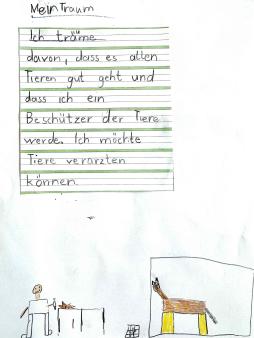 Mein Traum
Ich träme
davon, dass es allen
Tieren gut geht und
dass ich ein
Beschützer der Tiere
werde. Ich möchte
Tiere verarzten
können.